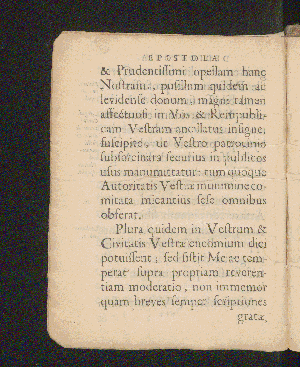 & Prudentissimi opellam hanc
Nostram, pusillum quidem ac
levidense donum, magni tamen
affectuus in Vos & Rempubli-
cam Vestram ancillatus insigne,
suscipite, ut Vestro patrocinio
subsarcinata securius in publicos
usus manumittatur: tum quoque
Autoritatis Vestræ munimine co-
mitata micantius sese omnibus
offerat.
Plura quidem in Vestrum &
Civitatis Vestræ encomium dici
potuissent; sed sistit Me ac tem-
perat supra propriam reveren-
tiam moderatio, non immemor
quam breves semper scriptiones
gratæ